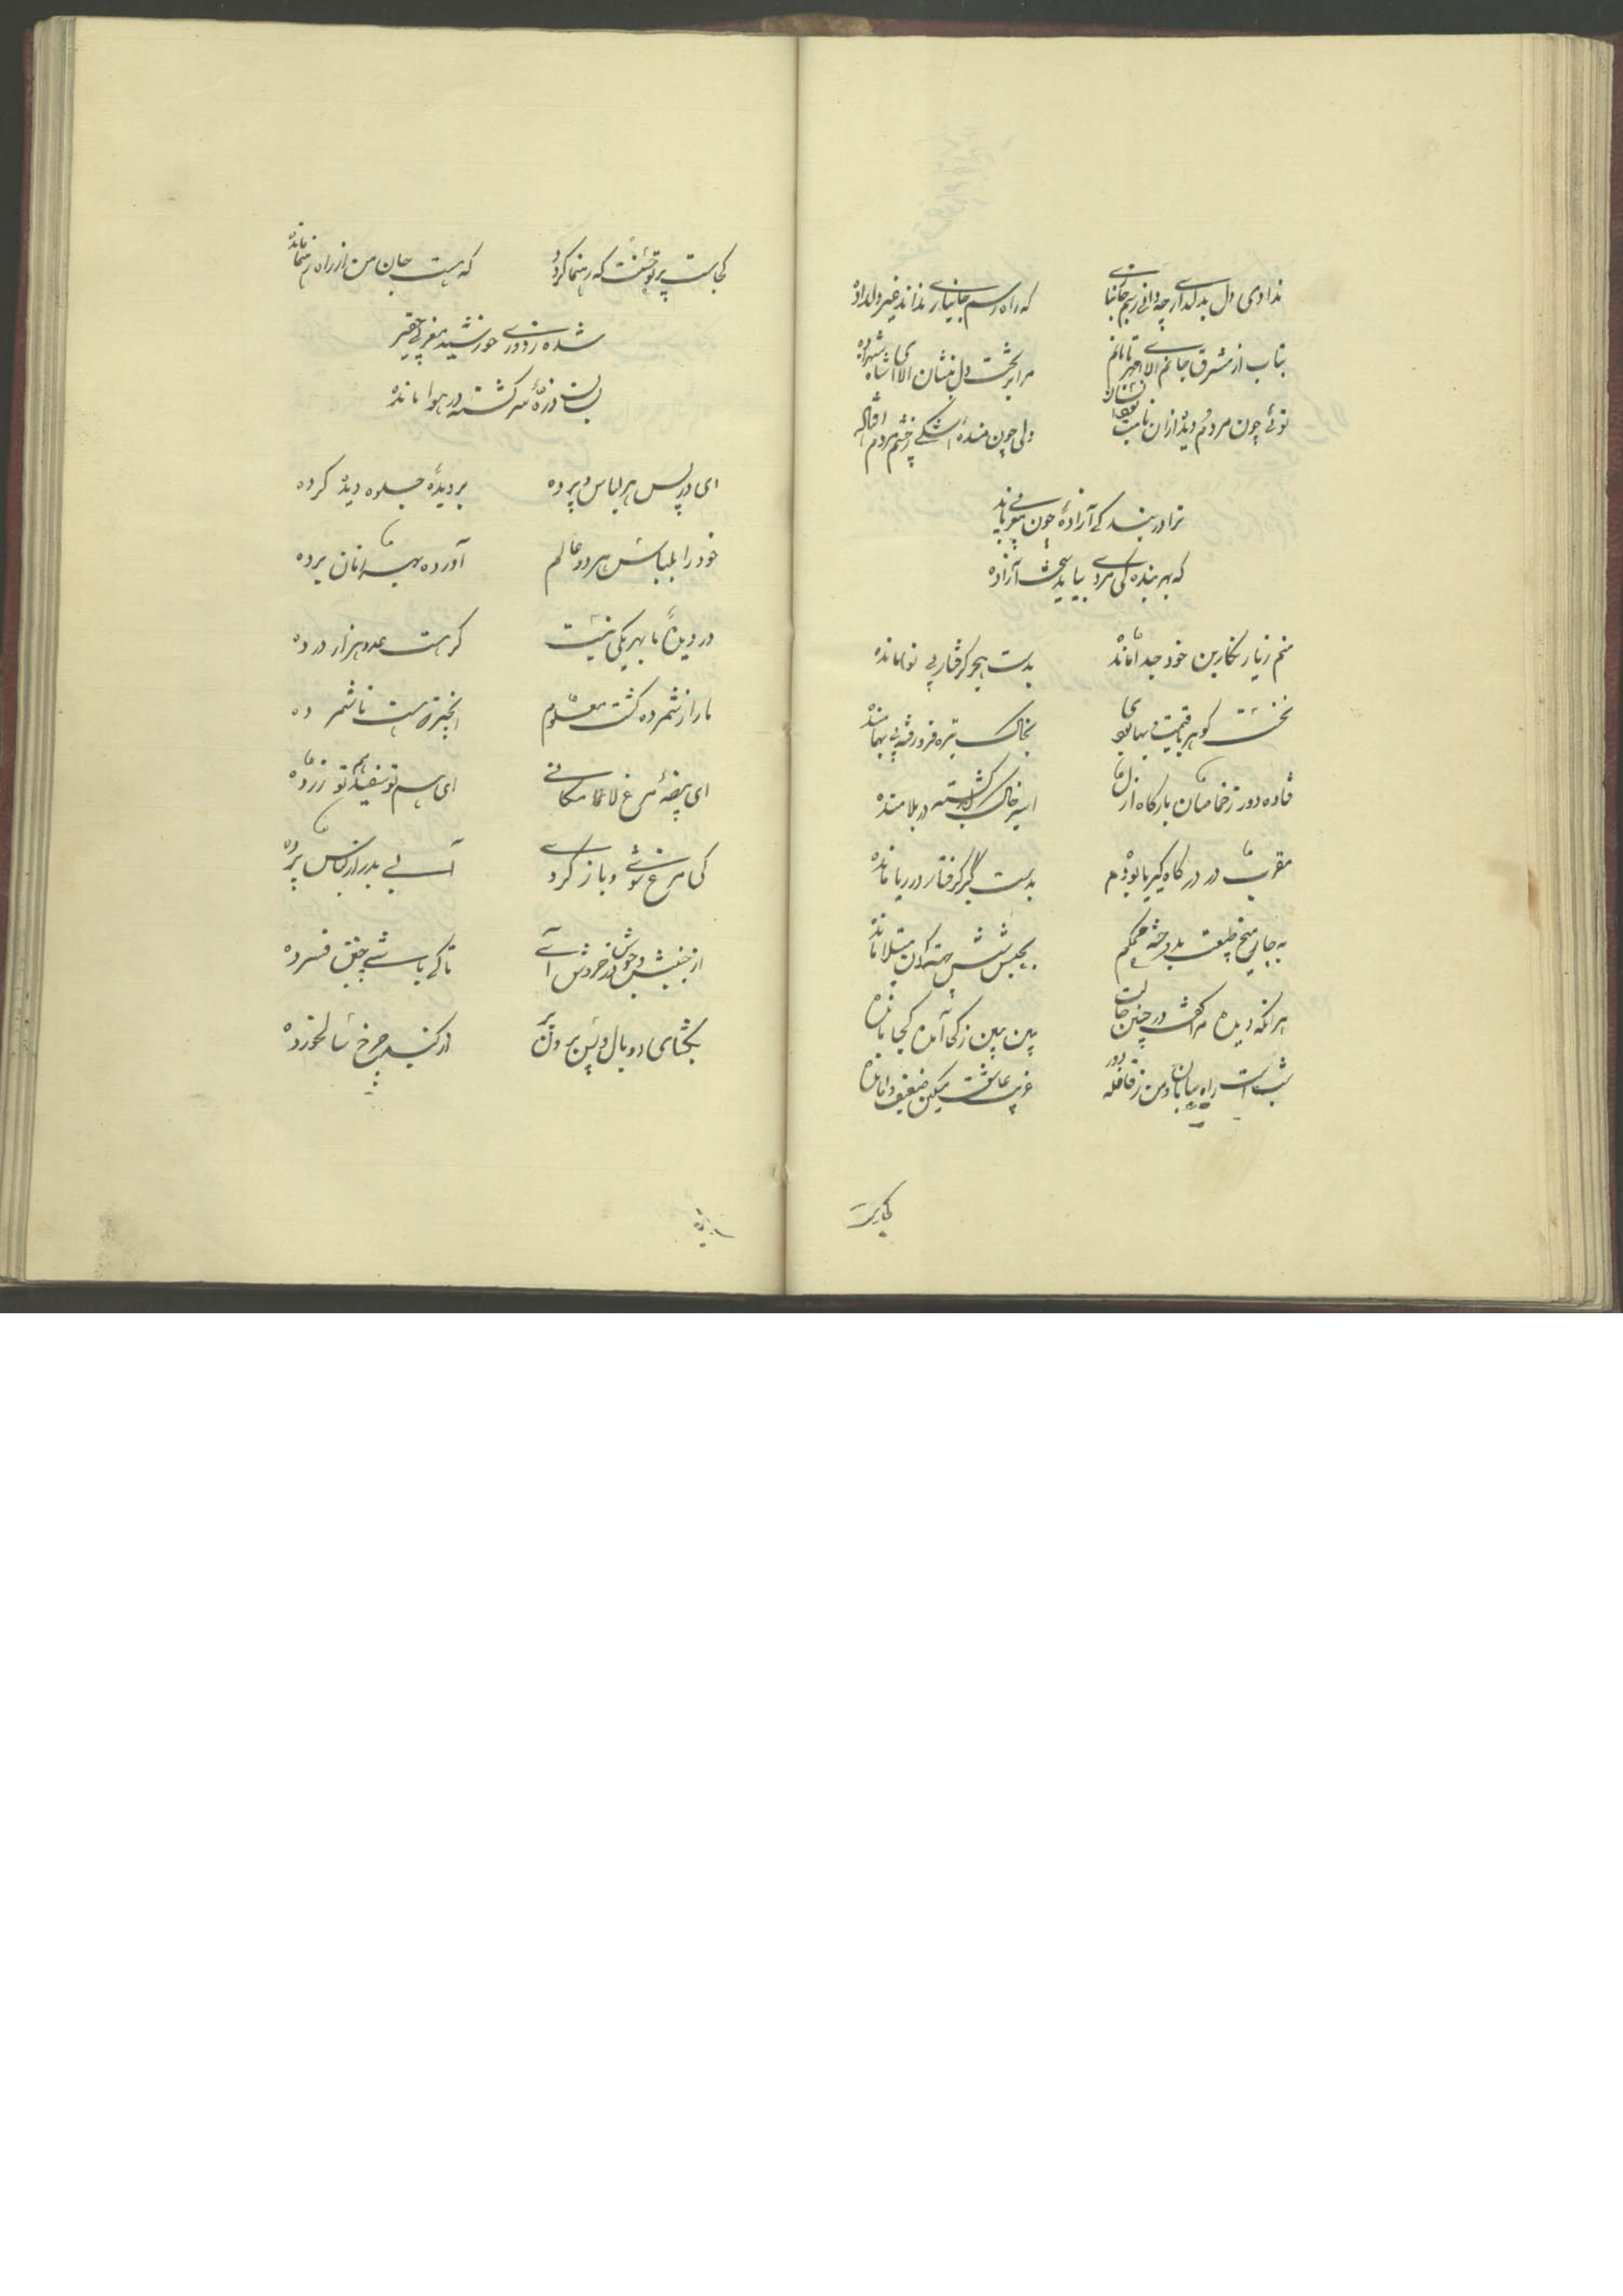 ندادی دل بدلداری چه دانی رسم جانبازی
که راه و رسم جانبازی نداند غیر دلداده
بتاب از مشرق جانم الا ای مهر تابانم
مرا بر تخت دل بنشان الا ای شاه شهزاده
توئی چون مردم دیده از آن
ولی چون منده اشکی ز چشم مردم افتاده
ترا در بندگی آزادهٔ چون مغربی باید
که بهر بندگی مردی بباید سخت آزاده
منم ز یار نگارین خود جدا مانده
بدست هجر گرفتار بی نوا مانده
نخست گوهر با قیمت و بها بودم
بخاک تیره فرو رفته بی بها مانده
فتاده دور ز خاصان بارگاه ازل
اسیر خاک در بلا مانده
مقرب در درگاه کبریا بودم
بدست کبر گرفتار در ریا مانده
به چار میخ طبیعت بدوخته محکم
بحبس شش جهت کون مبتلا مانده
هر آنکه دیده مرا گفت در چنین حالت
ببین ببین ز کجا آمده کجا مانده
شب است راه بیابان و من ز قافله دور
غریب عاشق مسکین ضعیف وامانده
کجاست
کجاست پرتو حسنت که رهنما گردد
که هست جان من از راه رهنما مانده
شده ز دوری خورشید مغربی حقیر
بسان ذرهٔ سرگشته در هوا مانده
ای در پس هر لباس و پرده
بر دیدهٔ جلوه دیده کرده
خود را بلباس هر دو عالم
آورده بهر زمان برده
در دیدهٔ ما بهر یکی نیست
گر هست عدد هزار در ده
ما را ز شمرده گشت معلوم
آنچیز که هست ناشمرده
ای بیضهٔ مرغ لامکانی
ای هم تو سفید هم تو زرده
کی مرغ شوی و باز گردی
از جنبش و جوش در خروش آی
تا کی باشی چنین فسرده
بگشای دو بال و پس برون پر
از گنبد چرخ سالخورده